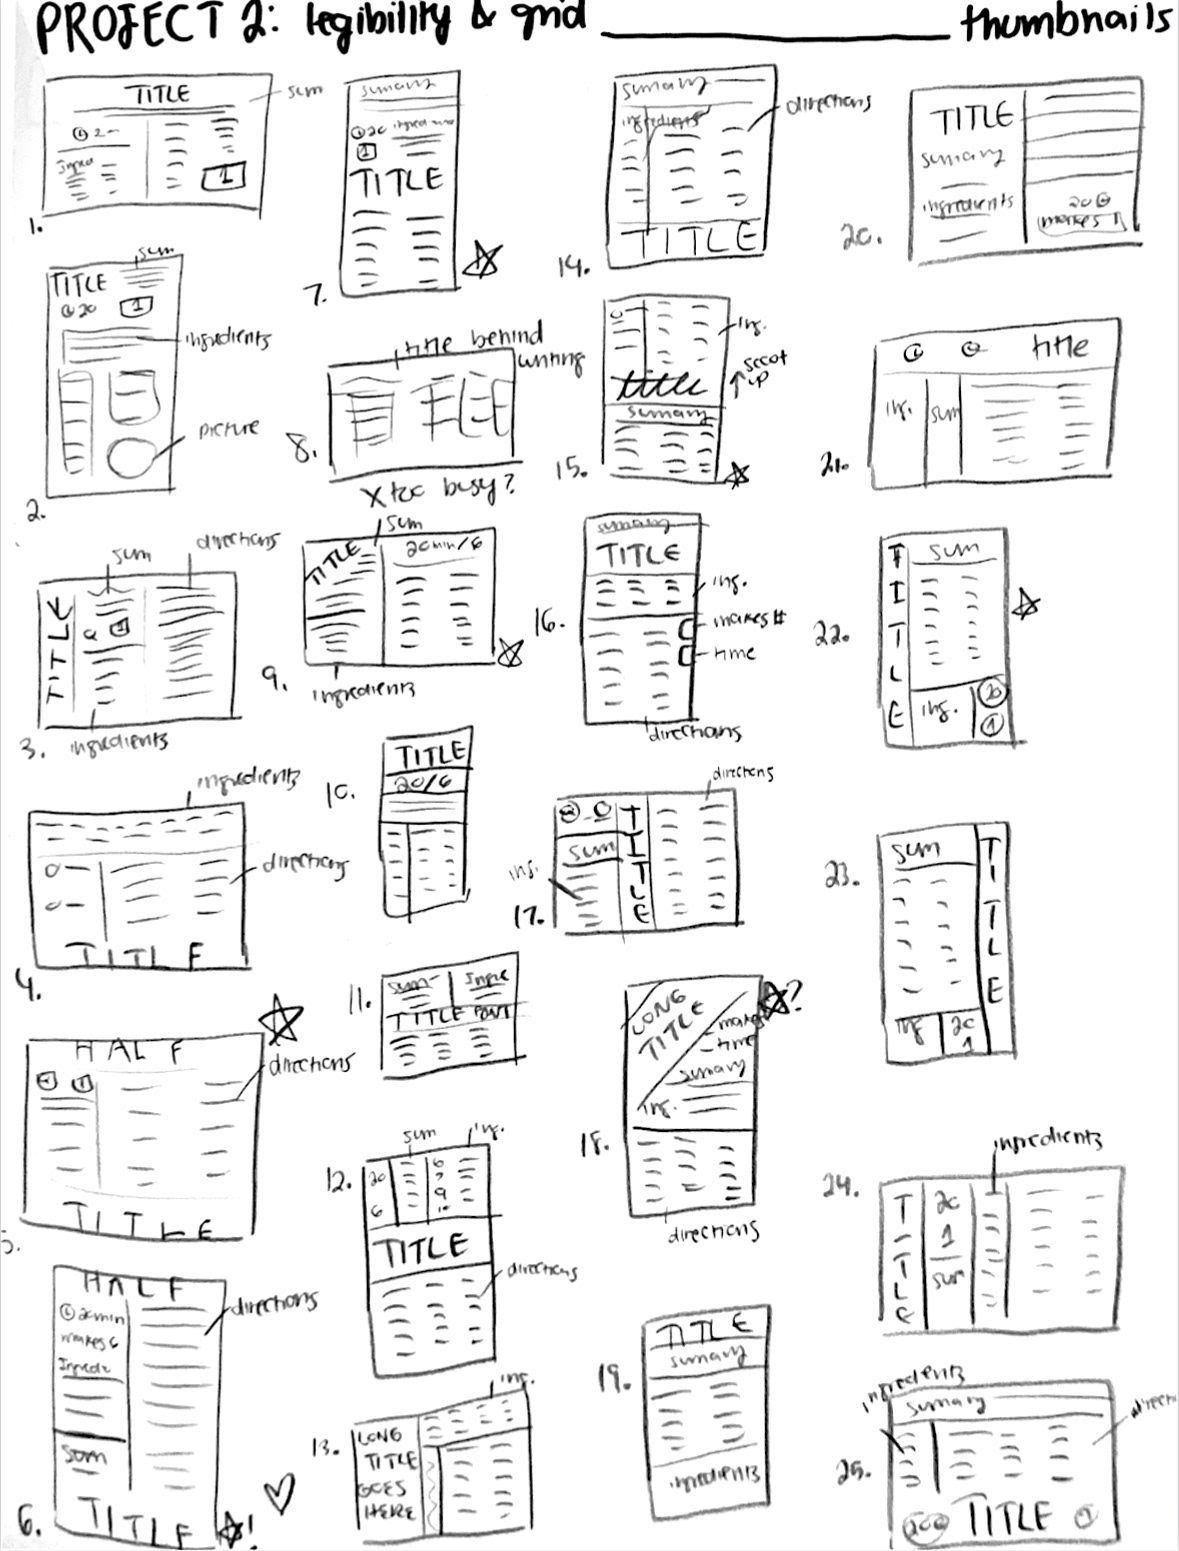 PROJECT 2: legibility & grid ____________ thumbnails
1.
TITLE
sum
2-
1
2.
sum
TITLE
20
1
ingredients
picture
3.
sum
directions
TITLE
1
ingredients
4.
ingredients
directions
TITLE
5.
HALF
directions
TITLE
6.
HALF
directions
20min
makes 6
sum
TITLE
7.
sumary
20
1
TITLE
8.
title behind
writing
X too busy?
9.
sum
TITLE
20min/6
ingredients
10.
TITLE
20/6
11.
sum
TITLE FONT
12.
sum
ing.
20
6
TITLE
directions
13.
ing.
LONG
TITLE
GOES
HERE
14.
sumary
ingredients
directions
TITLE
15.
ing.
title
scoot
up
sumary
16.
sumary
TITLE
ing.
makes #
time
directions
17.
directions
TITLE
sum
ing.
18.
LONG
TITLE
?
makes
time
sumary
ing.
directions
19.
TITLE
sumary
ingredients
20.
TITLE
sumary
ingredients
20
makes 1
21.
title
ing.
sum
22.
TITLE
sum
ing.
20
1
23.
sum
TITLE
ing
20
1
24.
ingredients
TITLE
20
1
sum
25.
ingredients
sumary
directi
TITLE